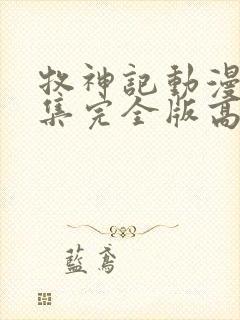 牧神記動漫
集完全版高
藍鳶